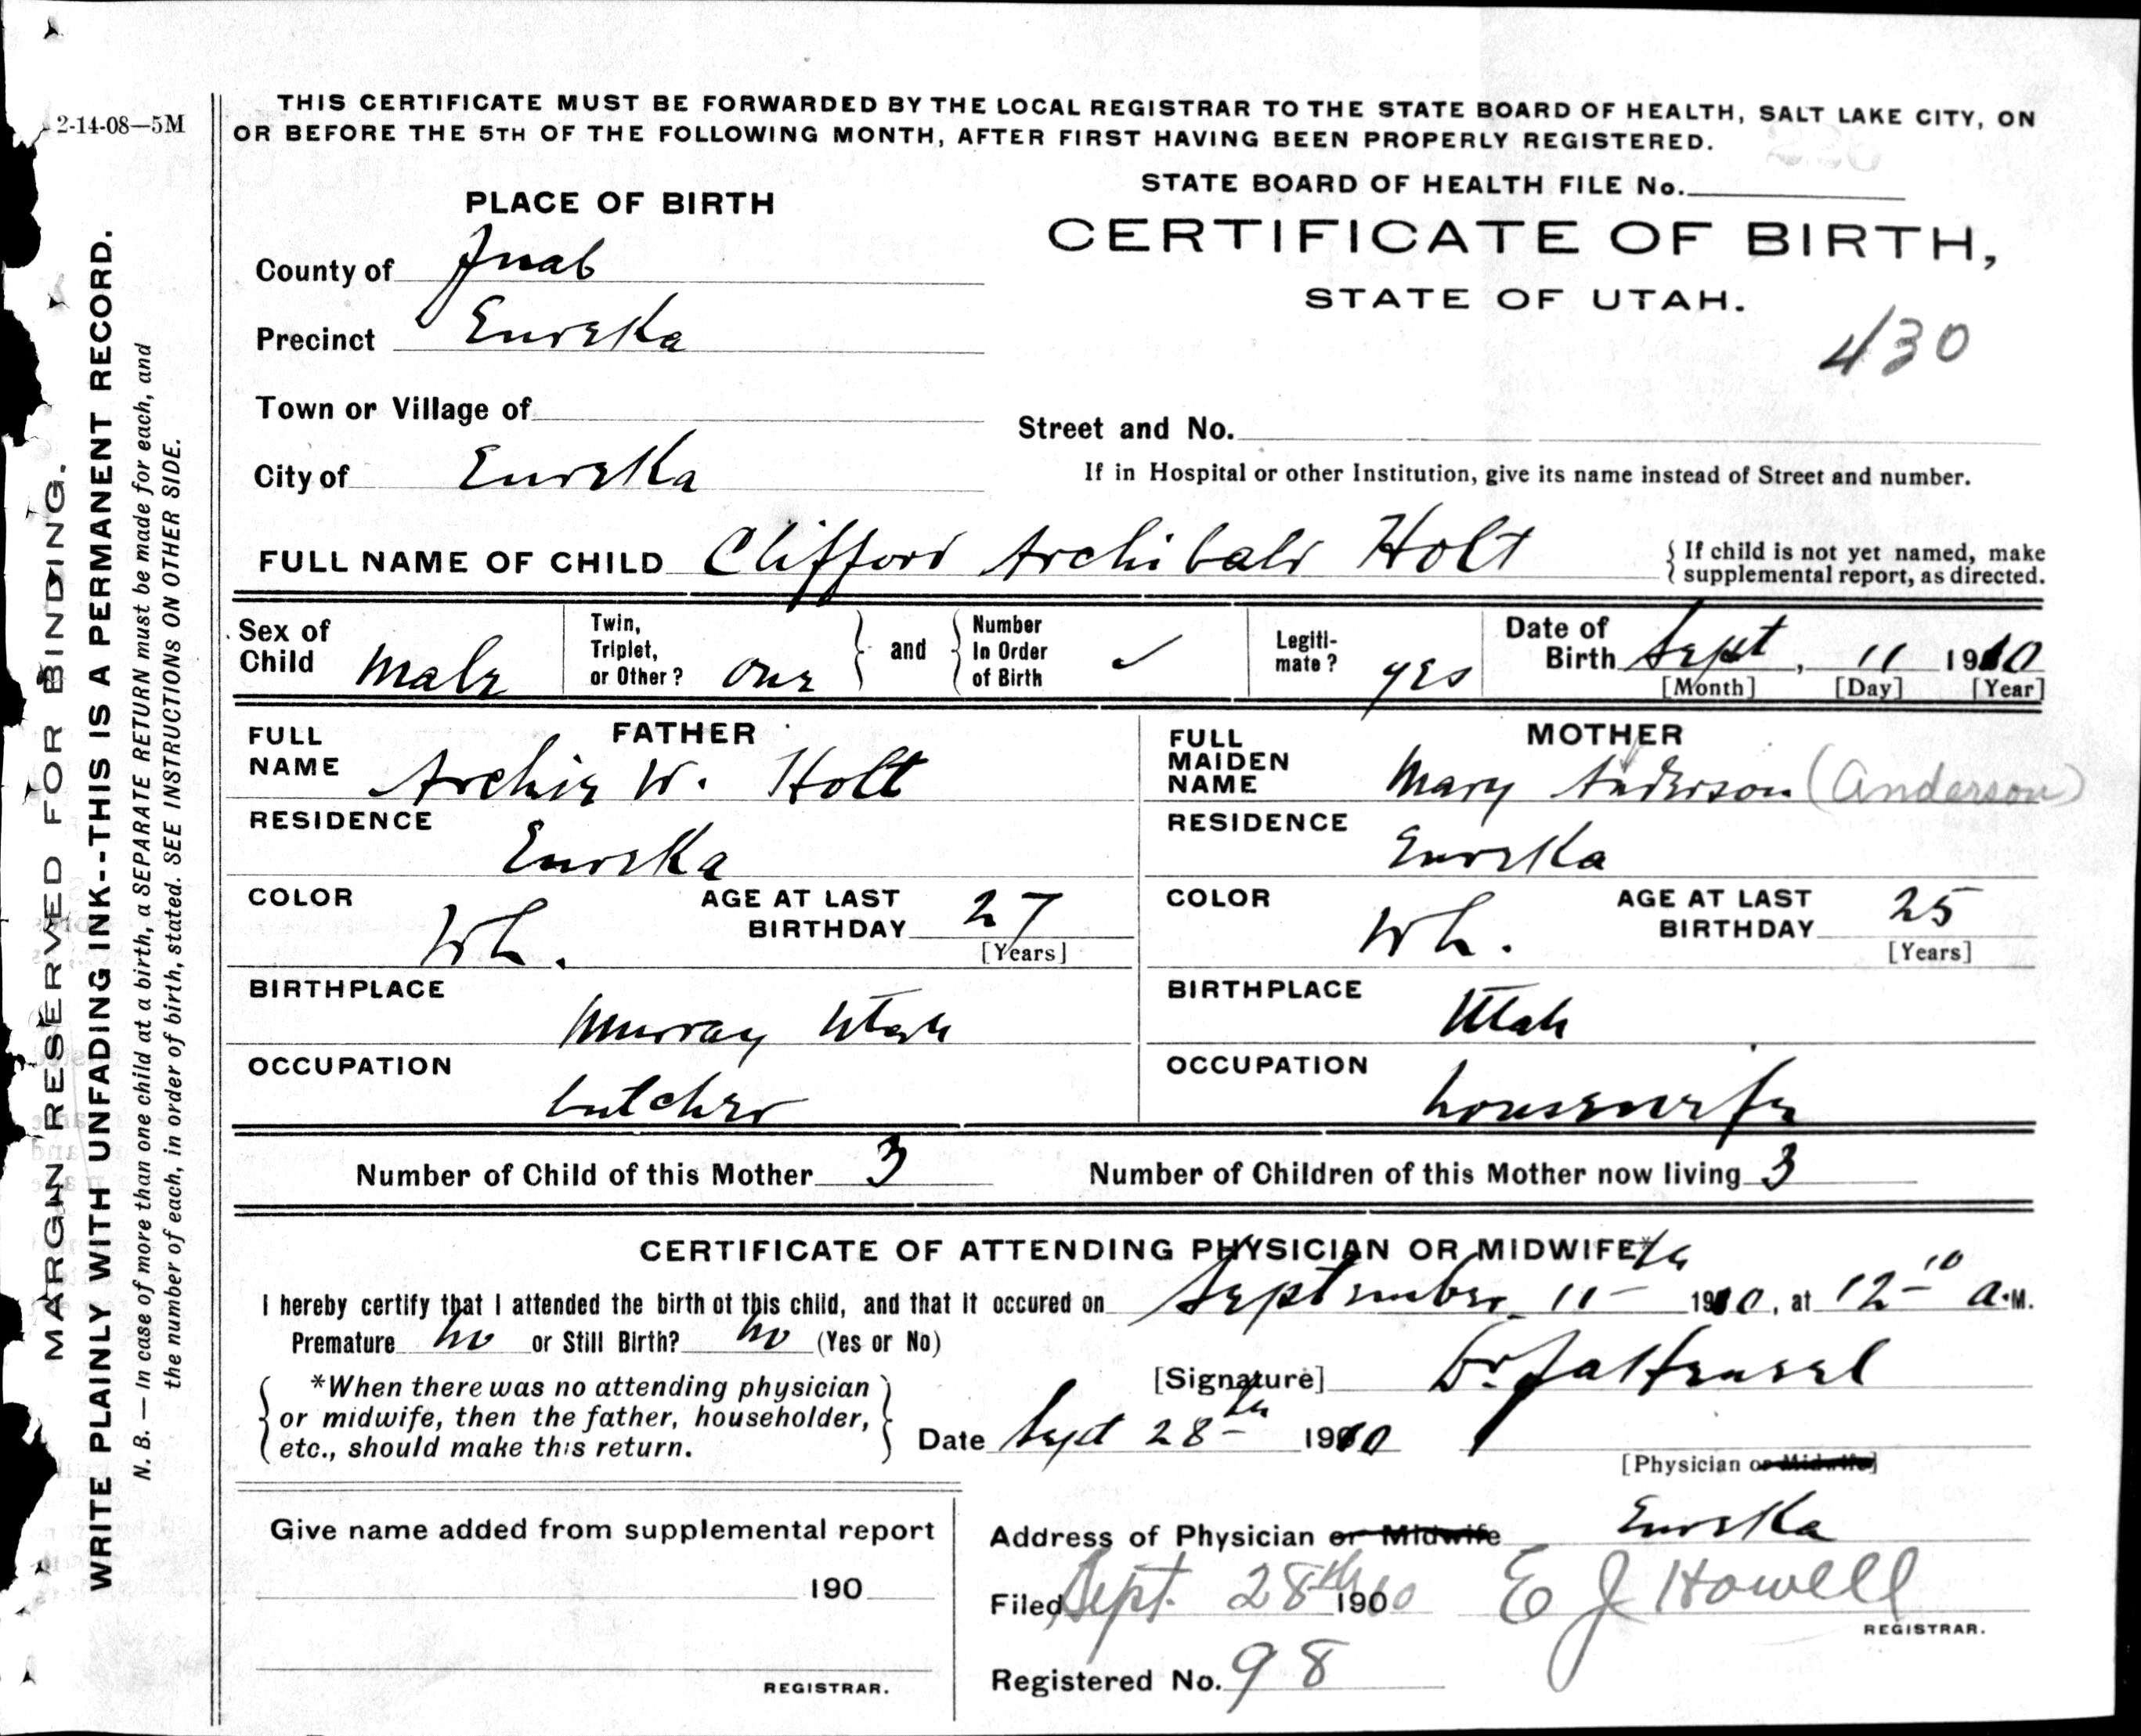 2-14-08—5M
THIS CERTIFICATE MUST BE FORWARDED BY THE LOCAL REGISTRAR TO THE STATE BOARD OF HEALTH, SALT LAKE CITY, ON
OR BEFORE THE 5TH OF THE FOLLOWING MONTH, AFTER FIRST HAVING BEEN PROPERLY REGISTERED.
MARGIN RESERVED FOR BINDING.
WRITE PLAINLY WITH UNFADING INK--THIS IS A PERMANENT RECORD.
N. B. — In case of more than one child at a birth, a SEPARATE RETURN must be made for each, and
the number of each, in order of birth, stated. SEE INSTRUCTIONS ON OTHER SIDE.
STATE BOARD OF HEALTH FILE No.
PLACE OF BIRTH
CERTIFICATE OF BIRTH,
STATE OF UTAH.
430
County of Juab
Precinct Eureka
Town or Village of
Street and No.
City of Eureka
If in Hospital or other Institution, give its name instead of Street and number.
FULL NAME OF CHILD Clifford Archibald Holt
{ If child is not yet named, make
supplemental report, as directed.
Sex of Child Male
Twin, Triplet, or Other? one } and { Number In Order of Birth ✓
Legitimate? yes
Date of Birth Sept, 11 1910
[Month] [Day] [Year]
FATHER
FULL NAME Archie W. Holt
RESIDENCE Eureka
COLOR Wh. AGE AT LAST BIRTHDAY 27
[Years]
BIRTHPLACE Murray Utah
OCCUPATION butcher
MOTHER
FULL MAIDEN NAME Mary Anderson (Anderson)
RESIDENCE Eureka
COLOR Wh. AGE AT LAST BIRTHDAY 25
[Years]
BIRTHPLACE Utah
OCCUPATION housewife
Number of Child of this Mother 3 Number of Children of this Mother now living 3
CERTIFICATE OF ATTENDING PHYSICIAN OR MIDWIFE*
I hereby certify that I attended the birth of this child, and that it occured on September 11th 1910, at 12-10 A.M.
Premature no or Still Birth? no (Yes or No)
[Signature] Dr.
{ *When there was no attending physician
or midwife, then the father, householder,
etc., should make this return. }
Date Sept 28th 1910
[Physician or Midwife]
Give name added from supplemental report
190
REGISTRAR.
Address of Physician or Midwife Eureka
Filed, Sept. 28th 19010 E J Howell
REGISTRAR.
Registered No. 98